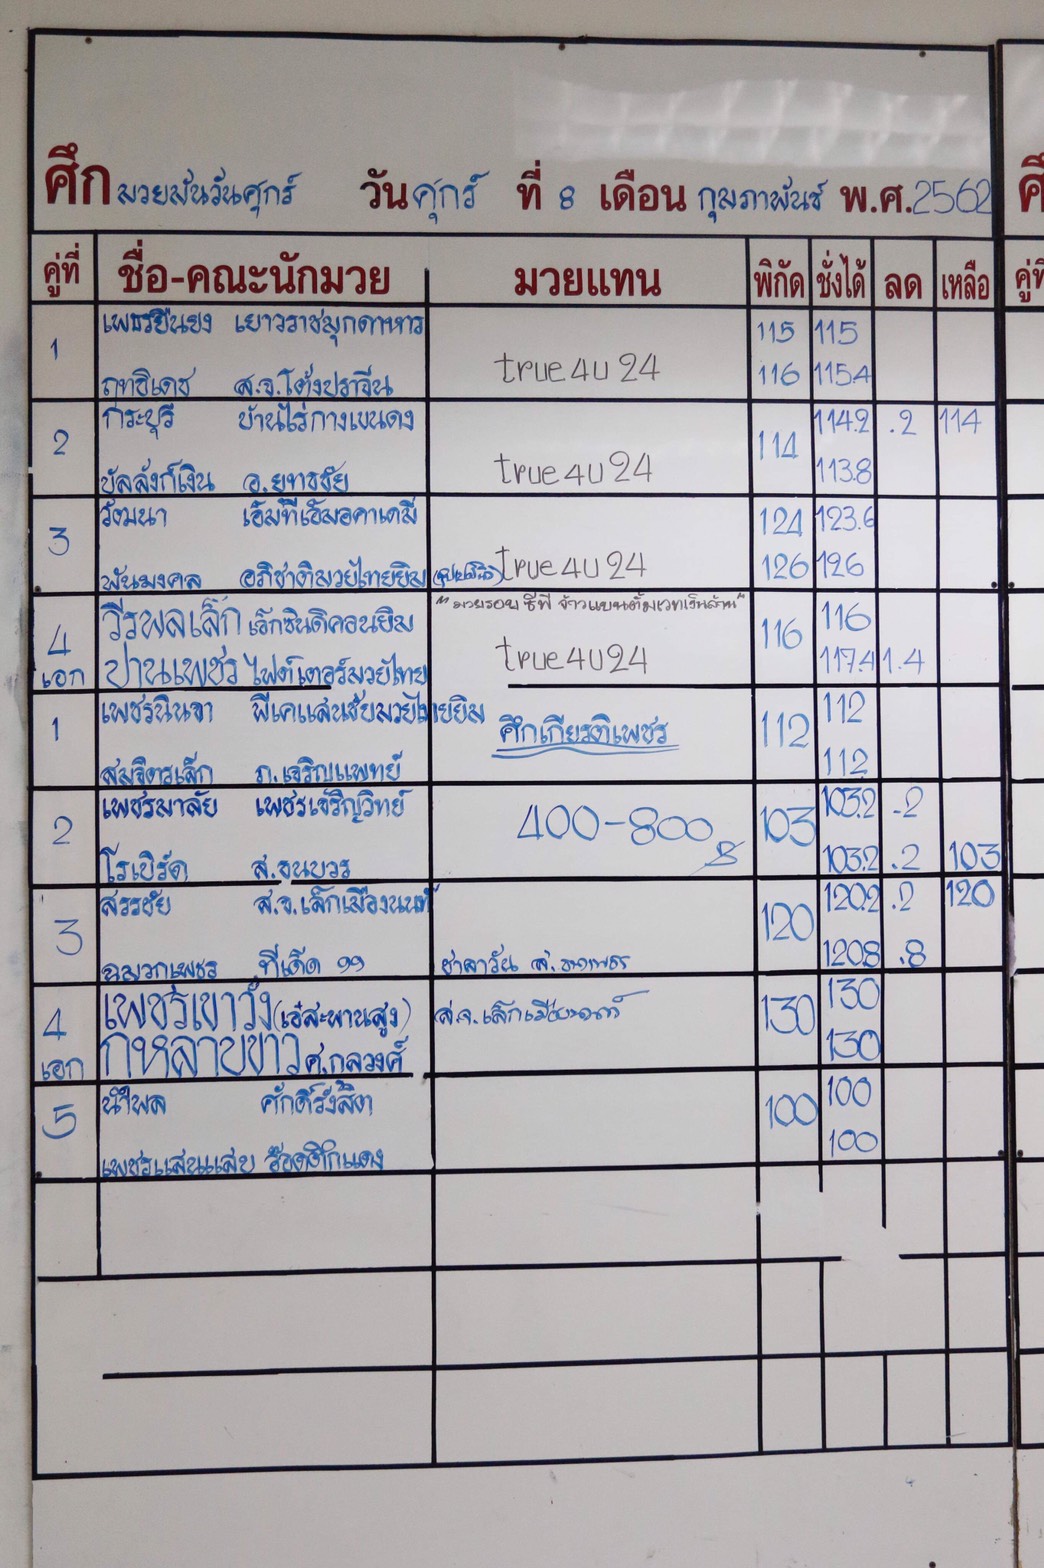 ศึก มวยมันวันศุกร์ วัน ศุกร์ ที่ 8 เดือน กุมภาพันธ์ พ.ศ. 2562
คู่ที่ ชื่อ-คณะนักมวย มวยแทน พิกัด ชั่งได้ ลด เหลือ
เพชรยืนยง เยาวราชมุกดาหาร 115 115
1 true4U24
ฤทธิเดช ส.จ.โต้งปราจีน 116 115.4
กระบุรี บ้านไร่กางเขนดง 114.2 .2 114
2 true4U24 114
บัลลังก์เงิน อ.ยุทธชัย 113.8
รัตมนา เอ็มทีเอ็มอคาเดมี่ 124 123.6
3 true4U24
พันมงคล อภิชาติมวยไทยยิม 126 126
วีรพลเล็ก เอ็กซินดิคอนยิม "มวยรอบ ชิงเวทเงินล้าน" 116
4 เอก true4U24 116
ปานเพชร ไฟต์เตอร์มวยไทย 117.4 1.4
เพชรนินจา พีเคแสนชัยมวยไทยยิม 112
1 ศึกเกียรติเพชร 112
สมจิตรเล็ก ภ.เจริญแพทย์ 112
เพชรมาลัย เพชรเจริญวิทย์ 103.2 .2
2 400-800 103
โรเบิร์ต ส.ธนบวร 103.2 .2 103
สรรชัย ส.จ.เล็กเมืองนนท์ 120.2 .2 120
3 120
ฉมวกเพชร ที่เด็ด 99 ชาลาวัน 120.8 .8
เพชรเขาวัง (เอ๋สะพานสูง) ส.จ.เล็กเมืองนนท์ 130
4 เอก 130
กุหลาบขาว ศ.กลวงศ์ 130
นำพล ศักดิ์รังสิต 100
5 100
เพชรแสนแสบ ร๊อตติโกแดง 100